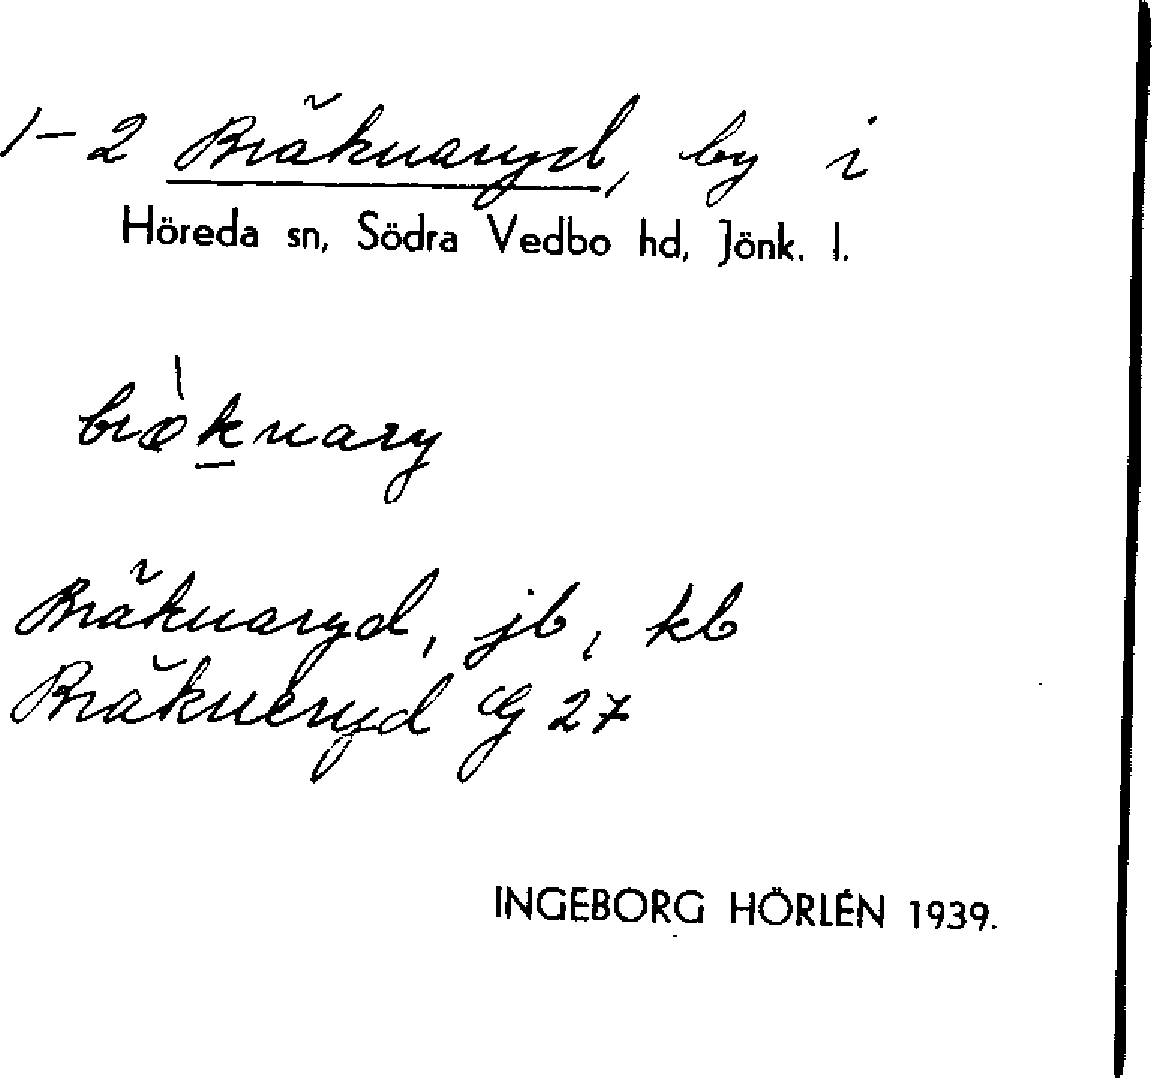 1-2 Bräknaryd, by i
Höreda sn, Södra Vedbo hd, Jönk. l.
bræ̀knary
Bräknaryd, jb, kb
Bräkneryd G 27
INGEBORG HÖRLÉN 1939.